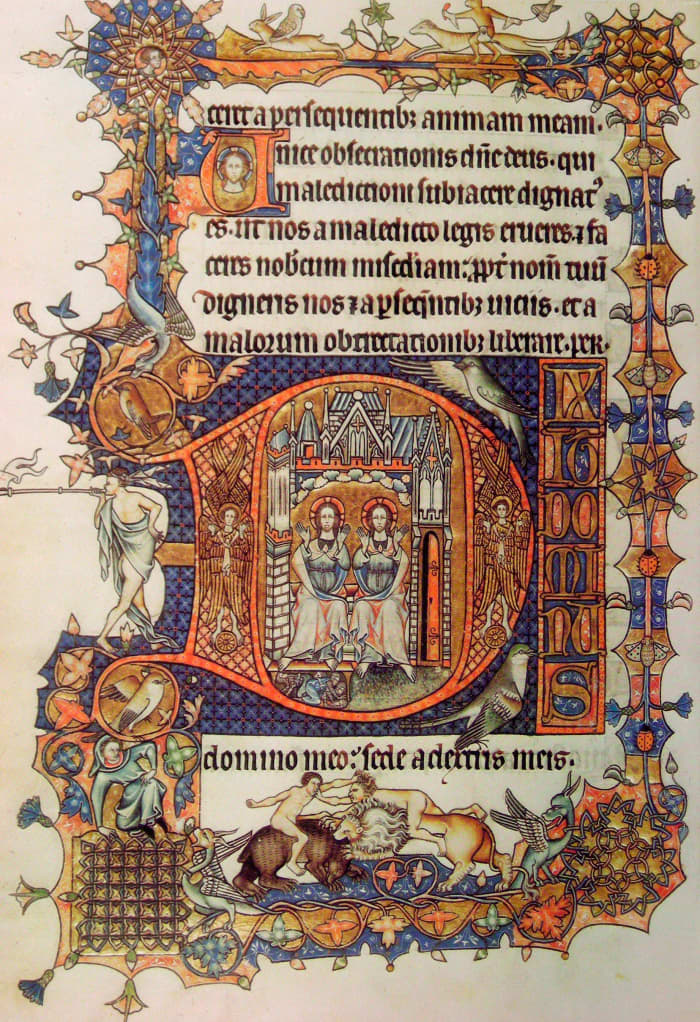 ceret a persequentibꝫ animam meam.
Unice obsecrationis dñe deus. qui
maledictioni subiacere dignatꝰ
es. ut nos a maledicto legis erueres. ⁊ fa
ceres nobcum miscdiam: ꝓpt nom̄ tuū
digneris nos ⁊ a ꝑseqñtibꝫ uiciis. et a
malorum obtrectationibꝫ liberare. per.
D
IX
IT
DO
MI
NS
domino meo: sede a dextris meis.